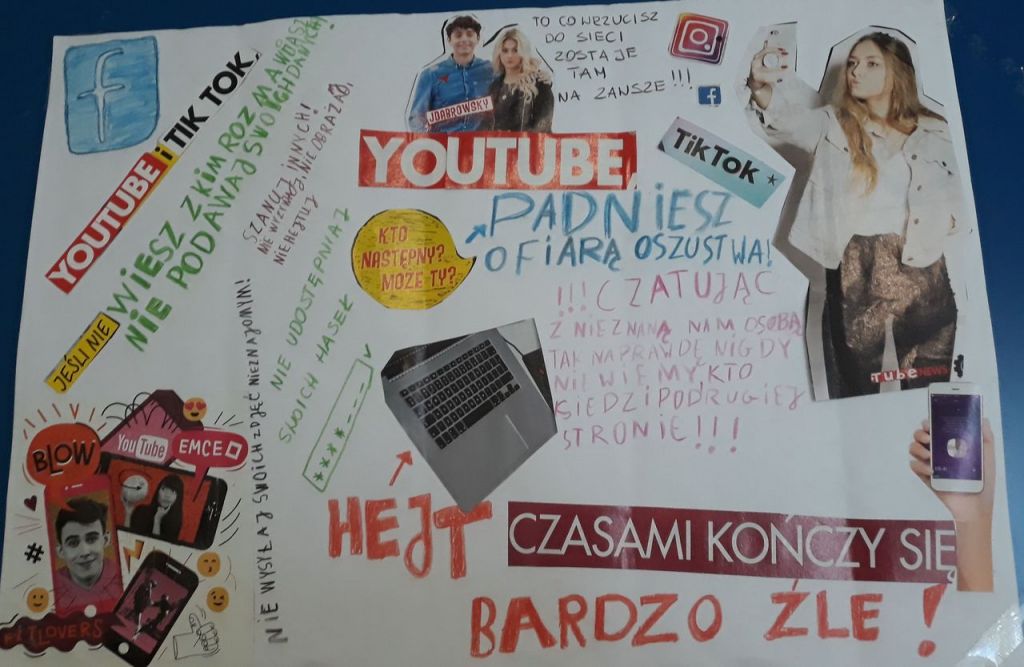 f
YOUTUBE i TIK TOK,
JEŚLI NIE
WIESZ Z KIM ROZMAWIASZ
NIE PODAWAJ SWOICH DANYCH!
SZANUJ INNYCH!
NIE WYZYWAJ, NIE OBRAŻAJ,
NIEHEJTUJ
NIE UDOSTĘPNIAJ
SWOICH HASEŁ
****----
NIE WYSYŁAJ SWOICH ZDJĘĆ NIEZNAJOMYM!
JDABROWSKY
TO CO WRZUCISZ
DO SIECI
ZOSTAJE
TAM
NA ZAWSZE!!!
f
YOUTUBE,
TikTok
KTO
NASTĘPNY?
MOŻE TY?
PADNIESZ
OFIARĄ OSZUSTWA!
!!!CZATUJĄC
Z NIEZNANĄ NAM OSOBĄ
TAK NAPRAWDĘ NIGDY
NIE WIEMY, KTO
SIEDZI PO DRUGIEJ
STRONIE!!!
TubeNEWS
BLOW
YouTube
EMCE
#
HEJT
CZASAMI KOŃCZY SIĘ
BARDZO ŹLE!